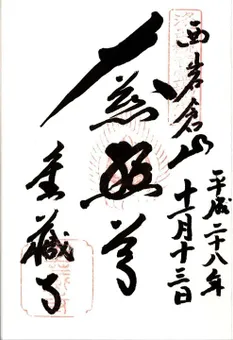 西岩倉山
平成二十八年
十一月十三日
大慈 尊
金蔵寺